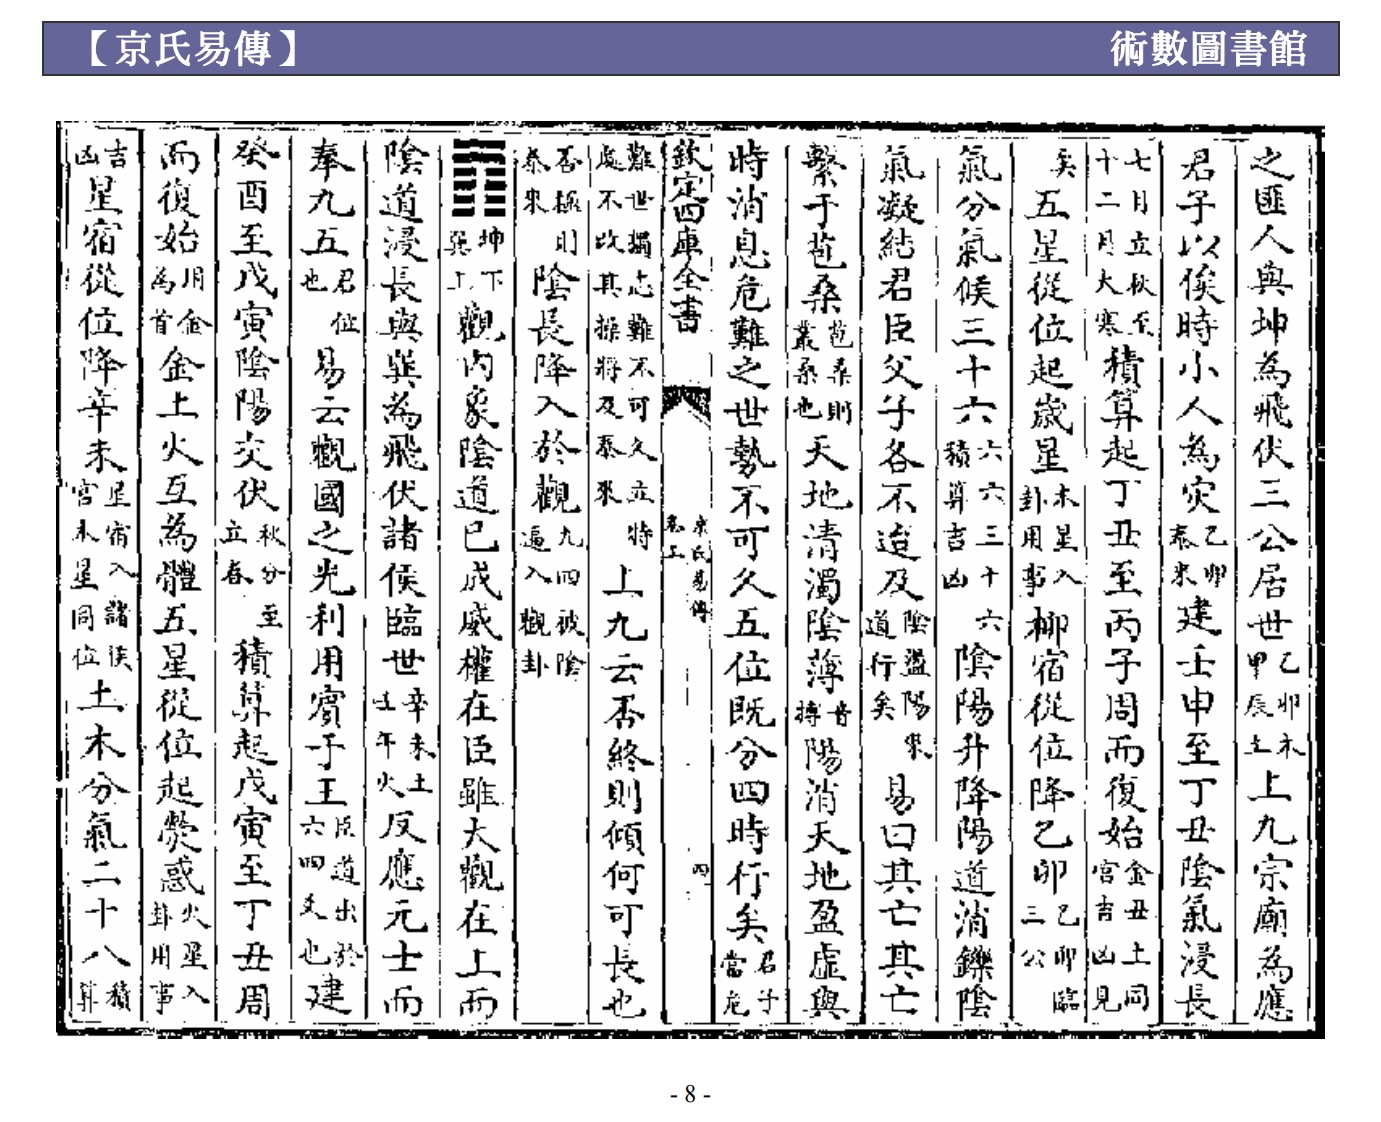 【京氏易傳】
術數圖書館
之匪人與坤為飛伏三公居世乙卯木甲辰土上九宗廟為應
君子以俟時小人為灾乙卯泰來建壬申至丁丑隂氣浸長
七月立秋至十二月大寒積算起丁丑至丙子周而復始金丑土同宮吉凶見
矣五星從位起歲星木星入卦用事柳宿從位降乙卯乙卯臨三公
氣分氣候三十六六六三十六積算吉凶隂陽升降陽道消鑠隂
氣凝結君臣父子各不迨及隂盪陽來道行矣易曰其亡其亡
繫于苞桑苞桑則叢桑也天地清濁隂薄音搏陽消天地盈虛與
時消息危難之世勢不可久五位既分四時行矣君子當危
欽定四庫全書
京氏易傳
卷上
四
難世獨志難不可久立特處不改其操將及泰來上九云否終則傾何可長也
否極則泰來隂長降入於觀九四被隂逼入觀卦
坤下巽上觀內象隂道已成威權在臣雖大觀在上而
隂道浸長與巽為飛伏諸侯臨世辛未土壬午火反應元士而
奉九五君位也易云觀國之光利用賓于王臣道出於六四爻也建
癸酉至戊寅隂陽交伏秋分至立春積算起戊寅至丁丑周
而復始用金為首金土火互為體五星從位起熒惑火星入卦用事
吉凶星宿從位降辛未星宿入諸侯宮未星同位土木分氣二十八積算
- 8 -